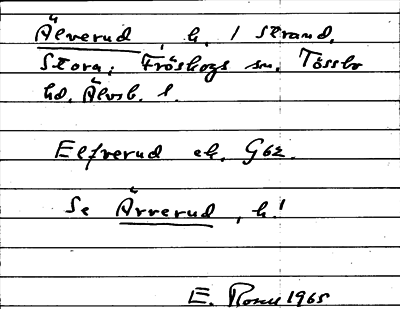 Älverud, h. / Strand,
Stora; Fröskogs sn. Tössbo
hd. Älvsb. l.
Elfverud ek. G62.
Se Ärrerud, h!
E. 1965